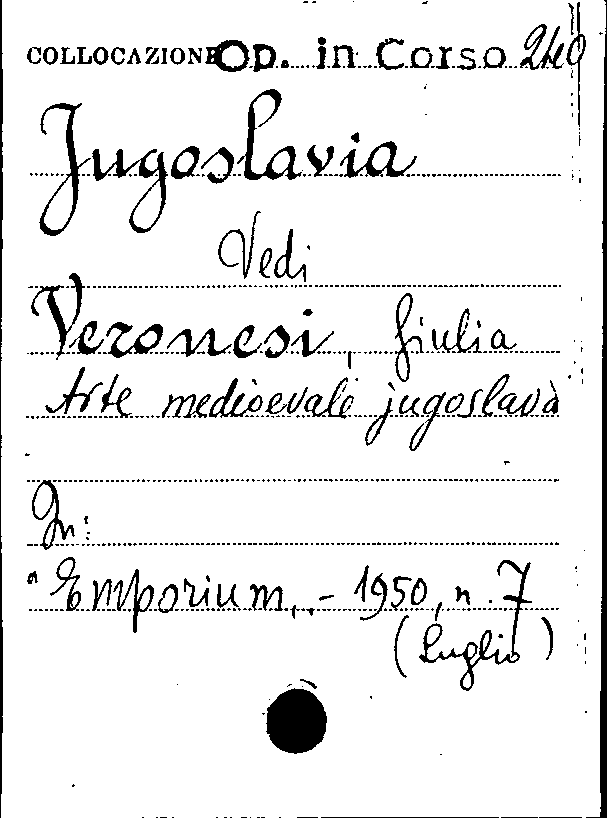 COLLOCAZIONE Op. in Corso 240
Jugoslavia
Vedi
Veronesi, Giulia
Arte medioevale jugoslava
In:
"Emporium„ - 1950, n. 7
(Luglio)